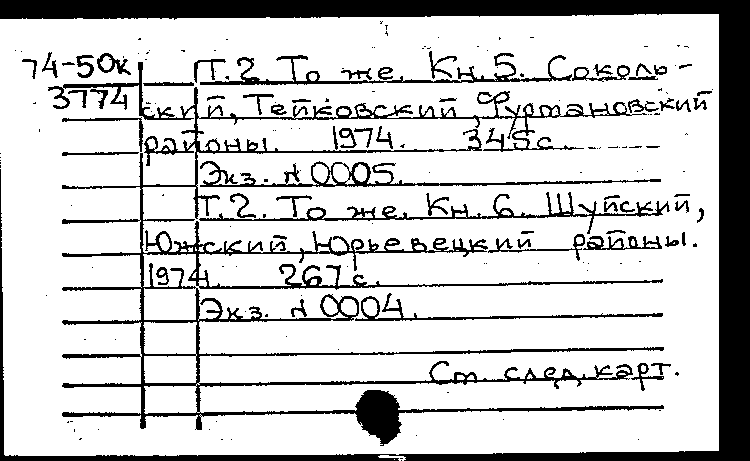 74-50к Т.2. То же. Кн. 5. Соколь-
3774 ский, Тейковский, Фурмановский
районы. 1974. 345с.
Экз. N 0005.
Т.2. То же. Кн. 6. Шуйский,
Южский, Юрьевецкий районы.
1974. 267с.
Экз. N 0004.
См. след. карт.